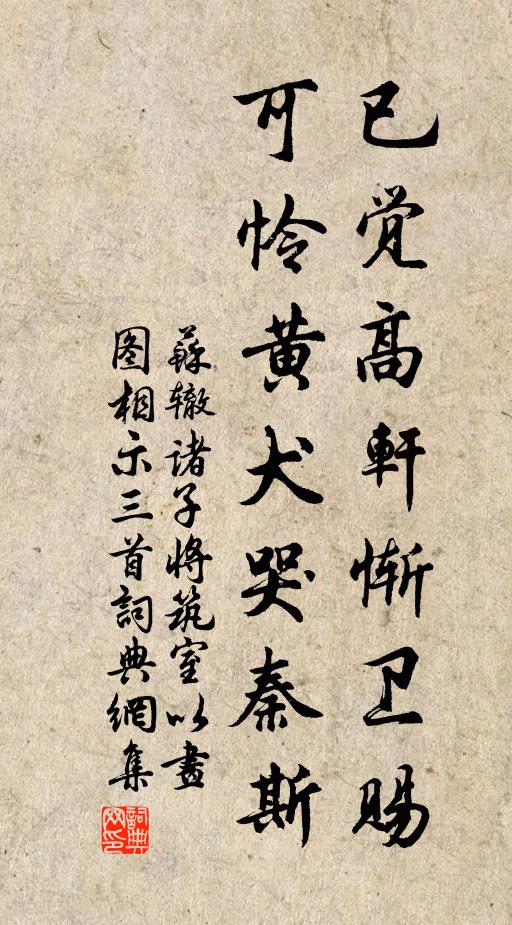 已觉高軒惭卫赐
可怜黄犬哭秦斯
蘇辙诸子将筑室以畫
图相示三首詞典網集
詞典网印